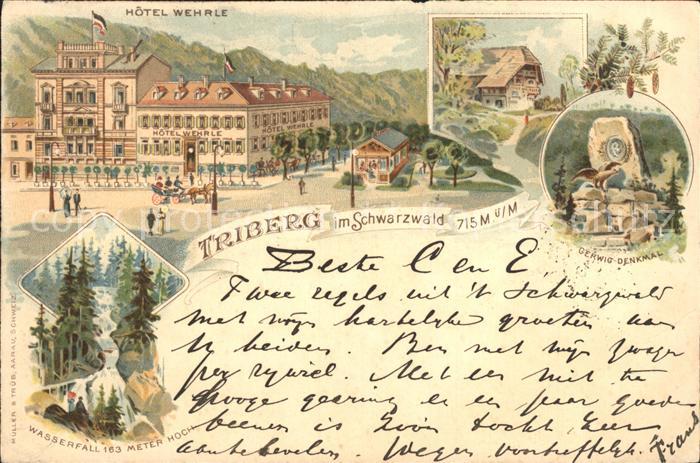 HÔTEL WEHRLE
HÔTEL WEHRLE
HÔTEL WEHRLE
TRIBERG im Schwarzwald 715 M ü/M
GERWIG-DENKMAL
WASSERFALL 163 METER HOCH
MÜLLER & TRÜB, AARAU, SCHWEIZ.
Beste C en E
Twee regels uit 't Schwarzwald
met mijn hartelijke groeten aan
U beiden. Ben met mijn zwager
per rijwiel. Met een niet te
hooge gearing en een paar goede
beenen is zoo'n tocht zeer
aantebevelen. Wegen voortreffelijk.
Frans